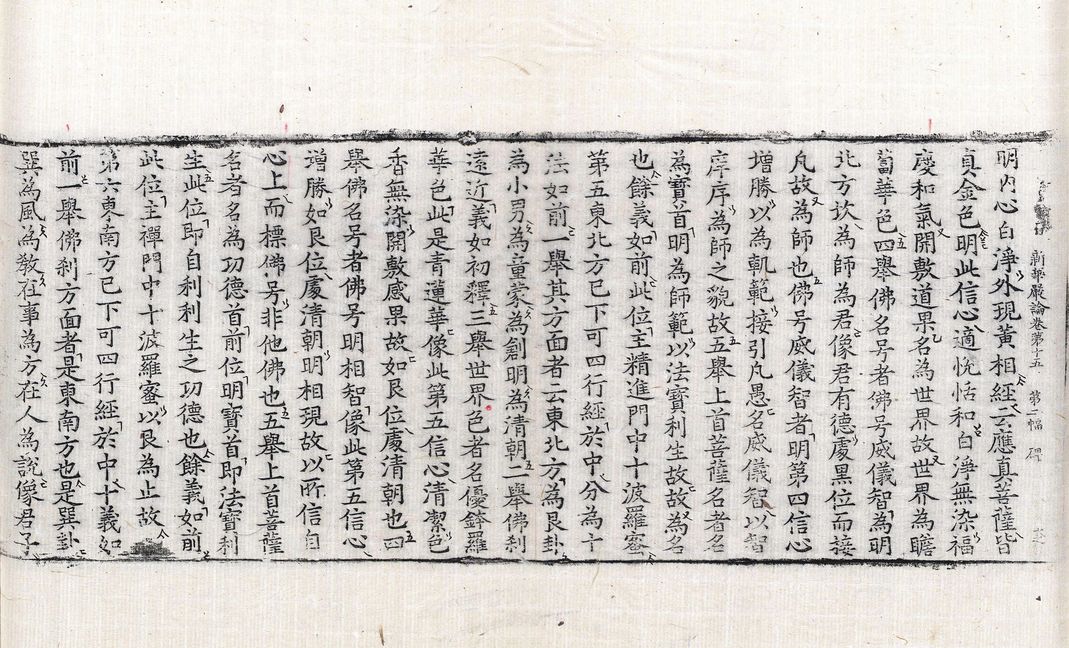 新華嚴論卷第十五 第二幅
明內心白淨外現黃相經云應真菩薩皆
真金色明此信心適悅恬和白淨無染福
慶和氣開敷道果名為世界故世界為瞻
蔔華色四舉佛名号者佛号威儀智為明
北方坎為師為君像君有德處黑位而接
凡故為師也佛号威儀智者明第四信心
增勝以為軌範接引凡愚名威儀智以智
序序為師之貌故五舉上首菩薩名者名
為寶首明為師範以法寶利生故故為名
也餘義如前此位主精進門中十波羅蜜
第五東北方已下可四行經於中分為十
法如前一舉其方面者云東北方為艮卦
為小男為童蒙為創明為清朝二舉佛剎
遠近義如初釋三舉世界色者名優鉢羅
華色此是青蓮華像此第五信心清潔色
香無染開敷感果故如艮位處清朝也四
舉佛名号者佛号明相智像此第五信心
增勝如艮位處清朝明相現故以所信自
心上而標佛号非他佛也五舉上首菩薩
名者名為功德首前位明寶首即法寶利
生此位即自利利生之功德也餘義如前
此位主禪門中十波羅蜜以艮為止故
第六東南方已下可四行經於中十義如
前一舉佛剎方面者是東南方也是巽卦
巽為風為教在事為方在人為說像君子